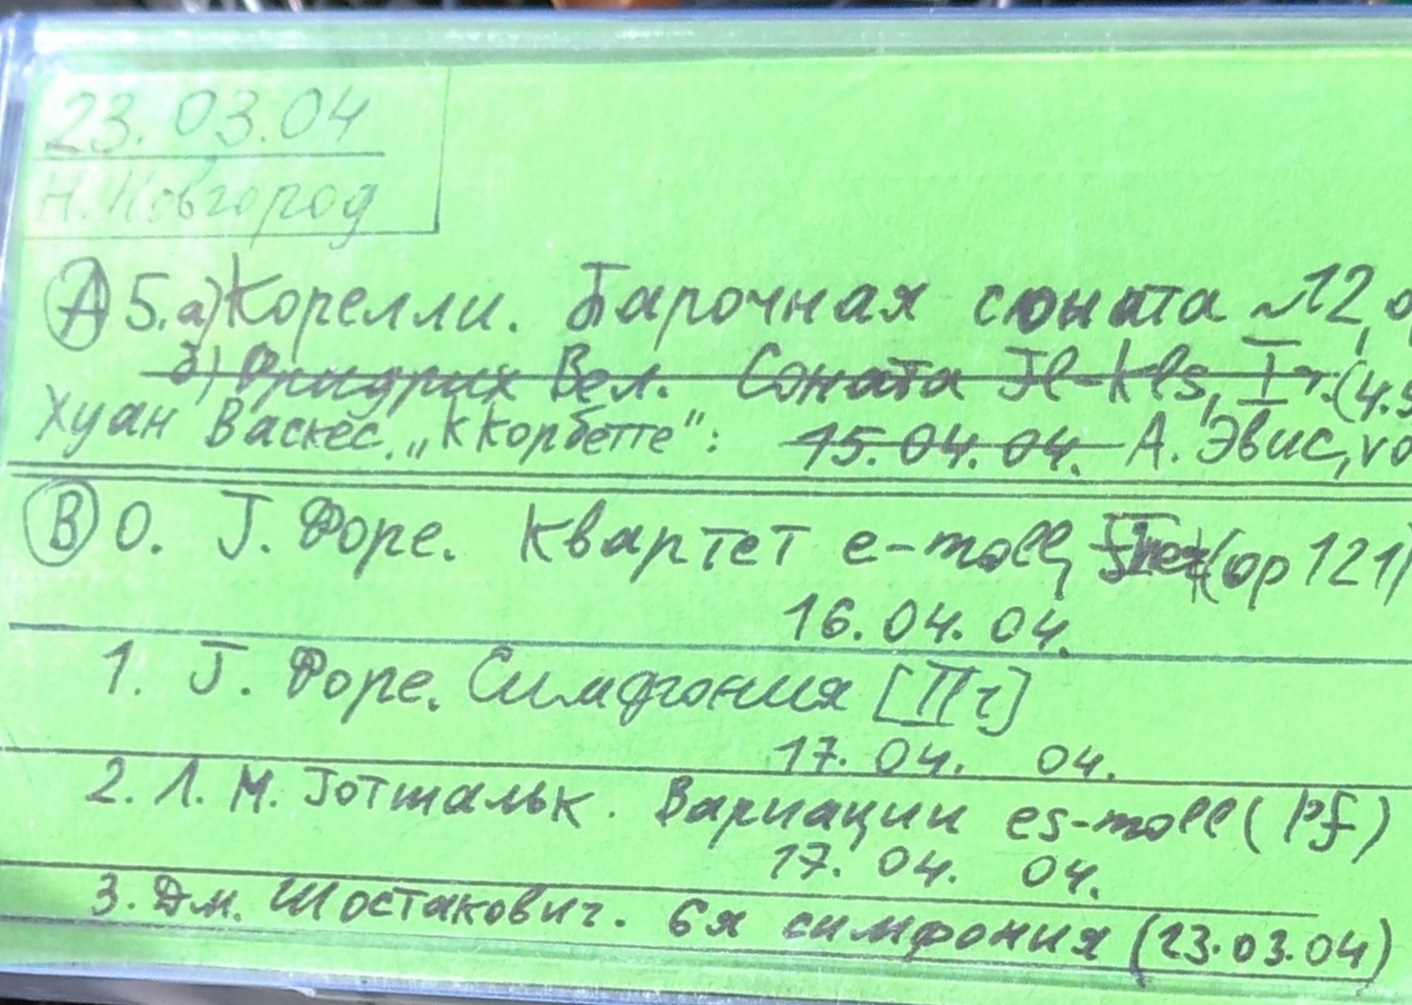 23.03.04
Н. Новгород
А 5.а) Корелли. Барочная соната №12,
б) Фридрих Вел. Соната Fl-kls, I ч. (4.
Хуан Васкес. „К Корбетте": 15.04.04. А. Эвис,
В 0. Г. Форе. Квартет e-moll, (op 121)
16.04.04.
1. Г. Форе. Симфония [IIч]
17.04. 04.
2. Л. М. Готшальк. Вариации es-moll (pf)
17.04. 04.
3. Дм. Шостакович. 6я симфония (23.03.04)